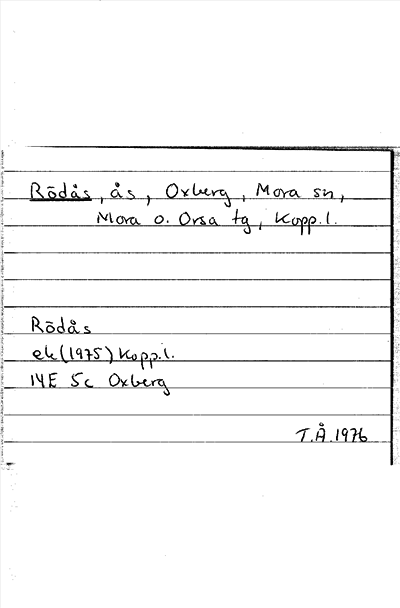 Rödås, ås, Oxberg, Mora sn,
Mora o. Orsa tg, Kopp. l.
Rödås
ek (1975) Kopp. l.
14E 5c Oxberg
T.Å. 1976